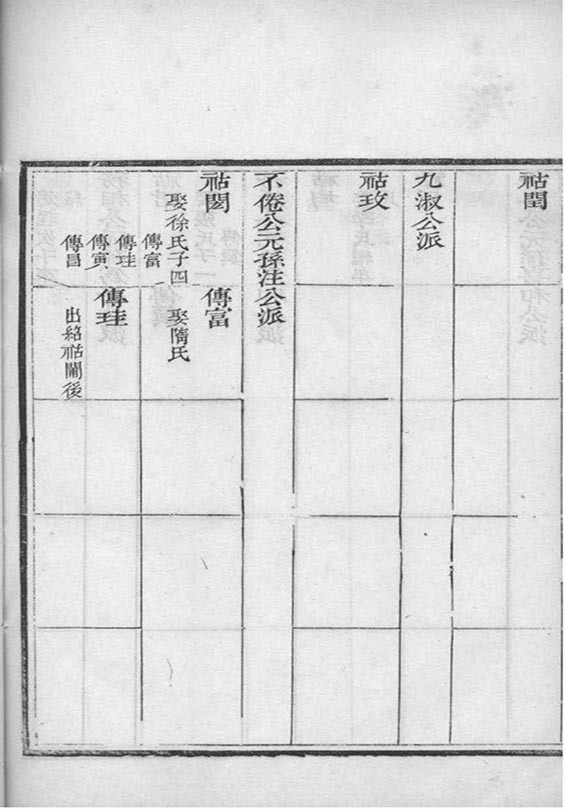 祜閏
九淑公派
祜玫
不倦公元孫注公派
祜閎
娶徐氏子四
傳富
傳珪
傳寅
傳昌
傳富
娶隋氏
傳珪
出紹祜闌後